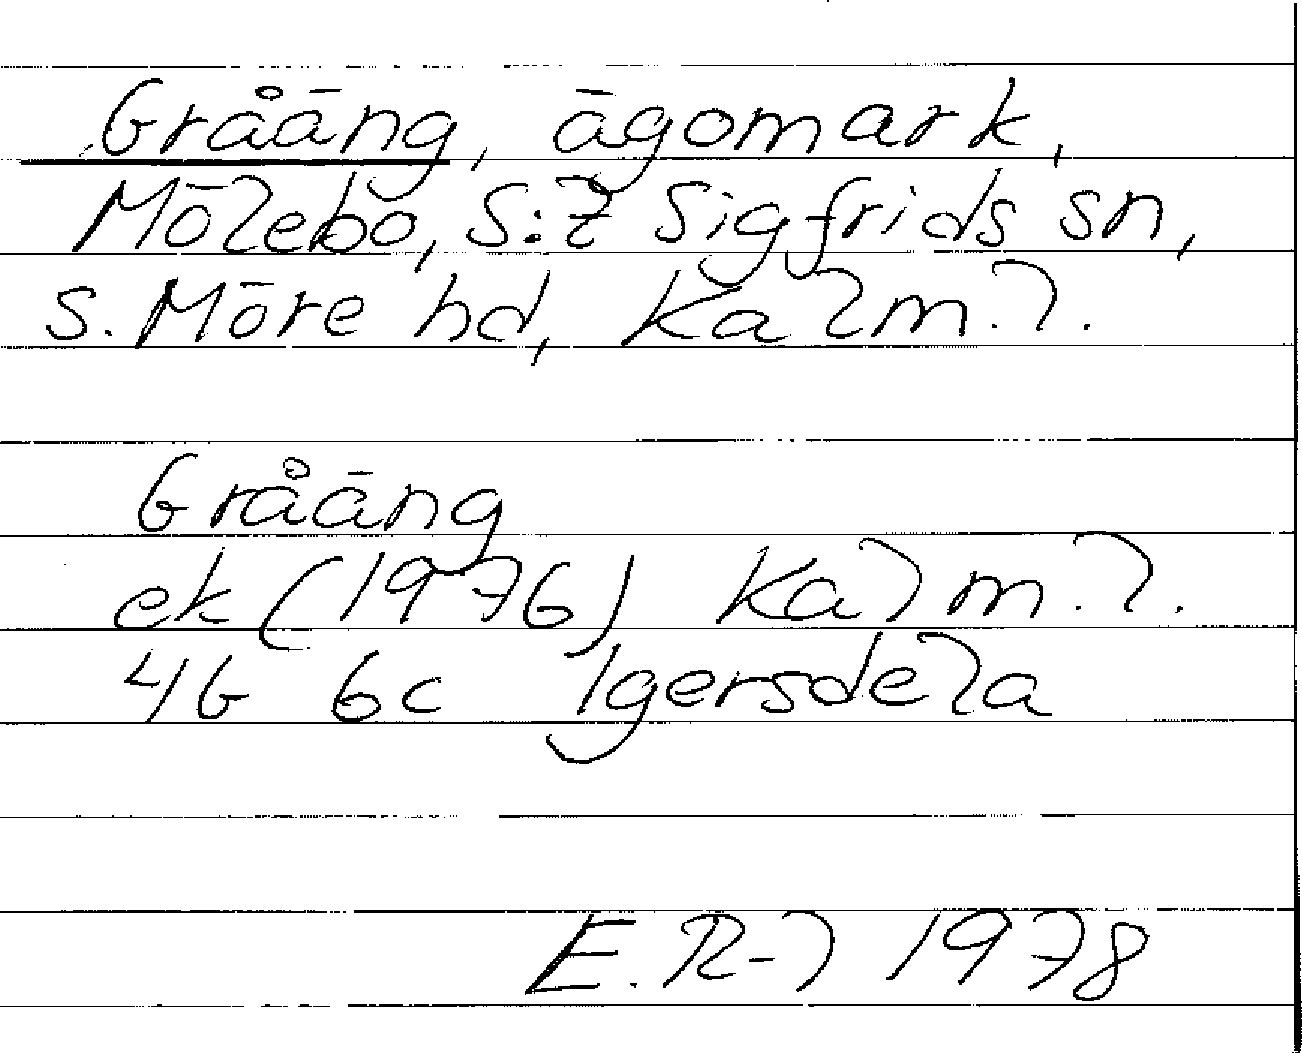 Gråäng, ägomark,
Mölebo, S:t Sigfrids sn,
S. Möre hd, Kalm. l.
Gråäng
ek (1976) Kalm. l.
4G 6c Igersdela
E. R-l 1978